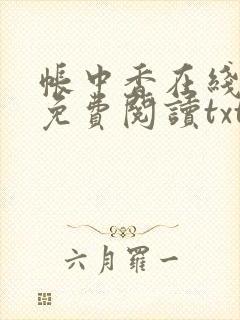 帳中香在綫
免費閱讀txt
六月羅一